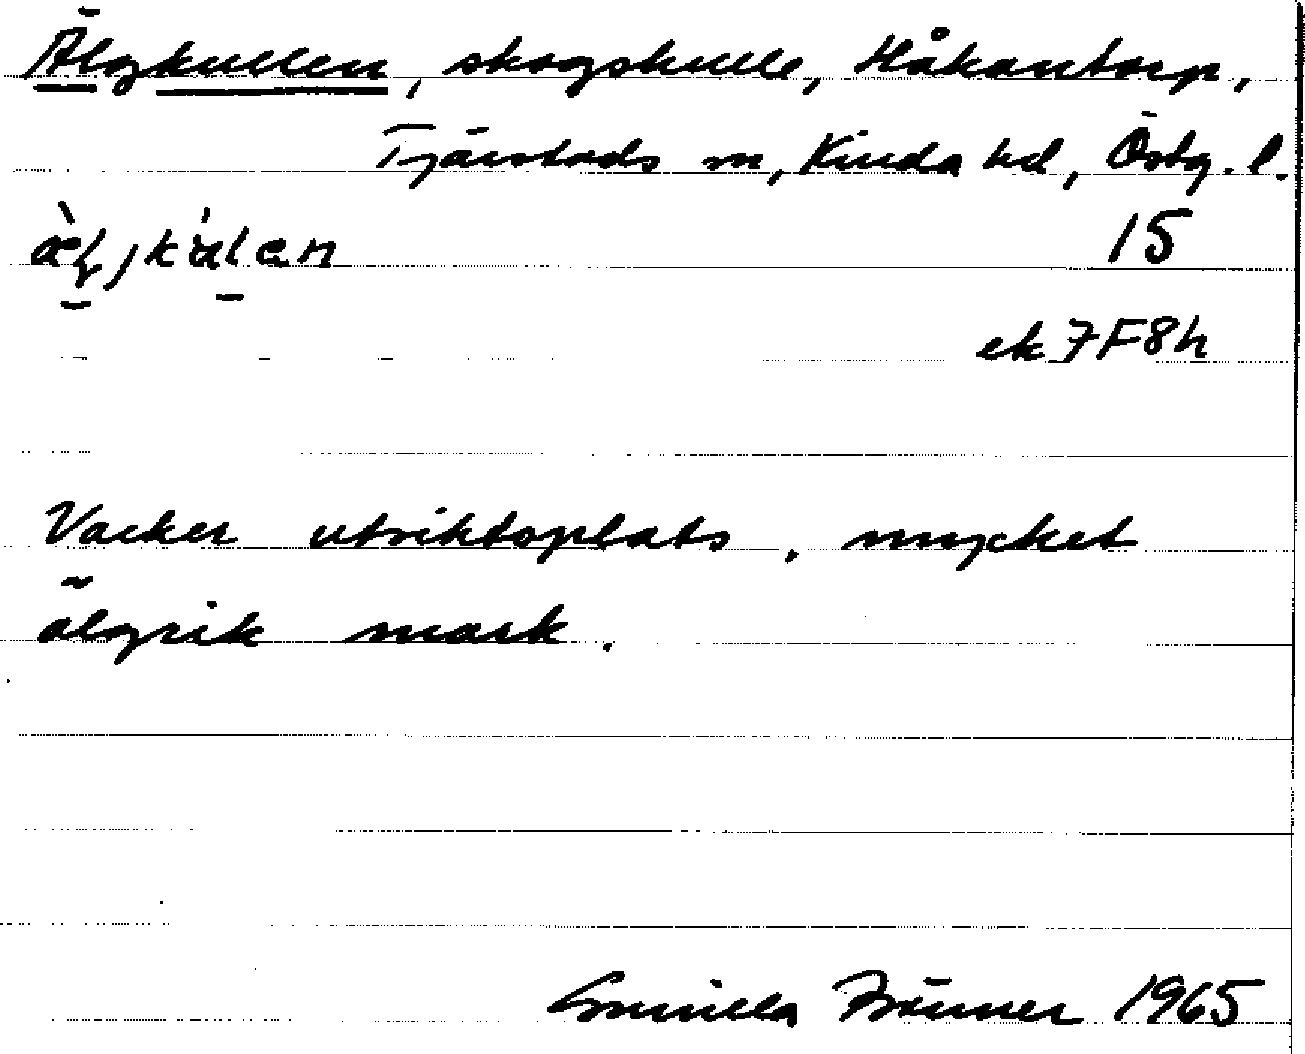 Älgkullen, skogskulle, Håkantorp,
Tjärstads sn, Kinda hd, Östg. l.
15
ek 7F8h
Vacker utsiktsplats, mycket
älgrik mark.
Gunilla 1965